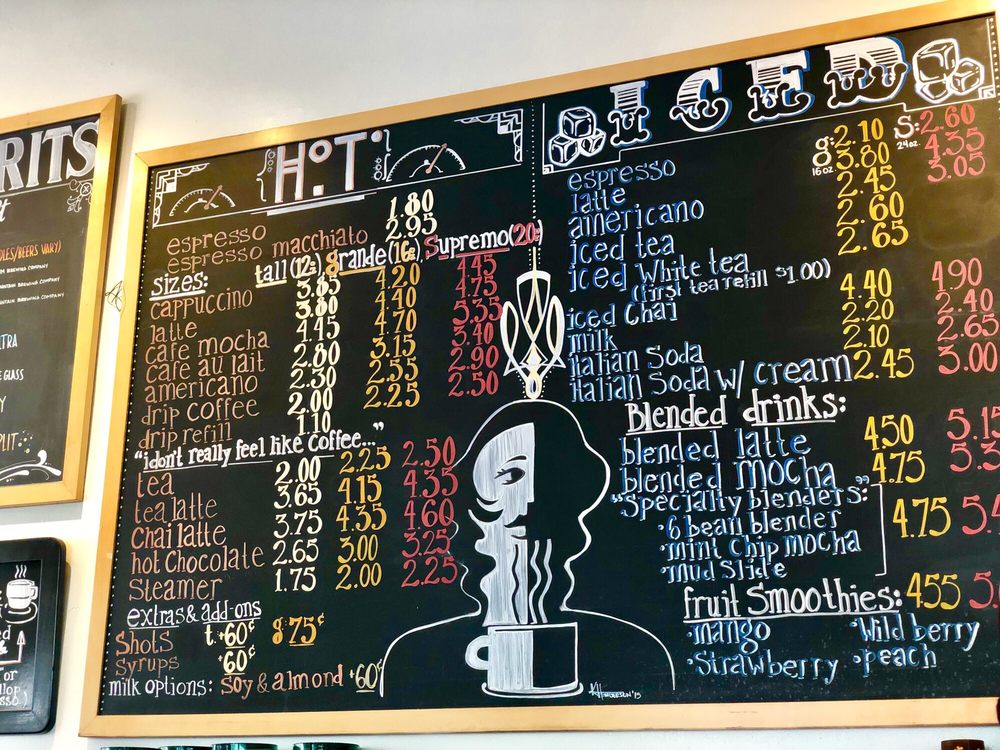 RITS
DLES/BEERS VARY)
BREWING COMPANY
BREWING COMPANY
BREWING COMPANY
GLASS
HOT
espresso 1.80
espresso macchiato 2.95
Sizes: tall(12z), grande(16z), Supremo(20z)
cappuccino 4.20 4.45
latte 3.80 4.40 4.75
cafe mocha 4.70 5.35
cafe au lait 2.80 3.15 3.40
americano 2.30 2.55 2.90
drip coffee 2.00 2.25 2.50
drip refill 1.10
"i don't really feel like coffee..."
tea 2.00 2.25 2.50
tea latte 3.65 4.15 4.35
Chai latte 3.75 4.35 4.60
hot Chocolate 2.65 3.00 3.25
Steamer 1.75 2.00 2.25
extras & add-ons
Shots t. +60¢ g. 75¢
Syrups +60¢
milk options: Soy & almond +60¢
ICED
g: 16oz. S: 24oz.
espresso 2.10 2.60
latte 3.80 4.35
americano 2.45 3.05
iced tea 2.60
iced White tea 2.65
(first tea refill $1.00)
iced Chai 4.40 4.90
milk 2.20 2.40
italian Soda 2.10 2.65
italian Soda w/ cream 2.45 3.00
Blended drinks:
blended latte 4.50 5.15
blended mocha 4.75 5.3
"Specialty blenders:"
·6 bean blender 4.75 5.4
·mint Chip mocha
·mud Slide
fruit Smoothies: 4.55 5.
·mango ·Wild berry
·Strawberry ·peach